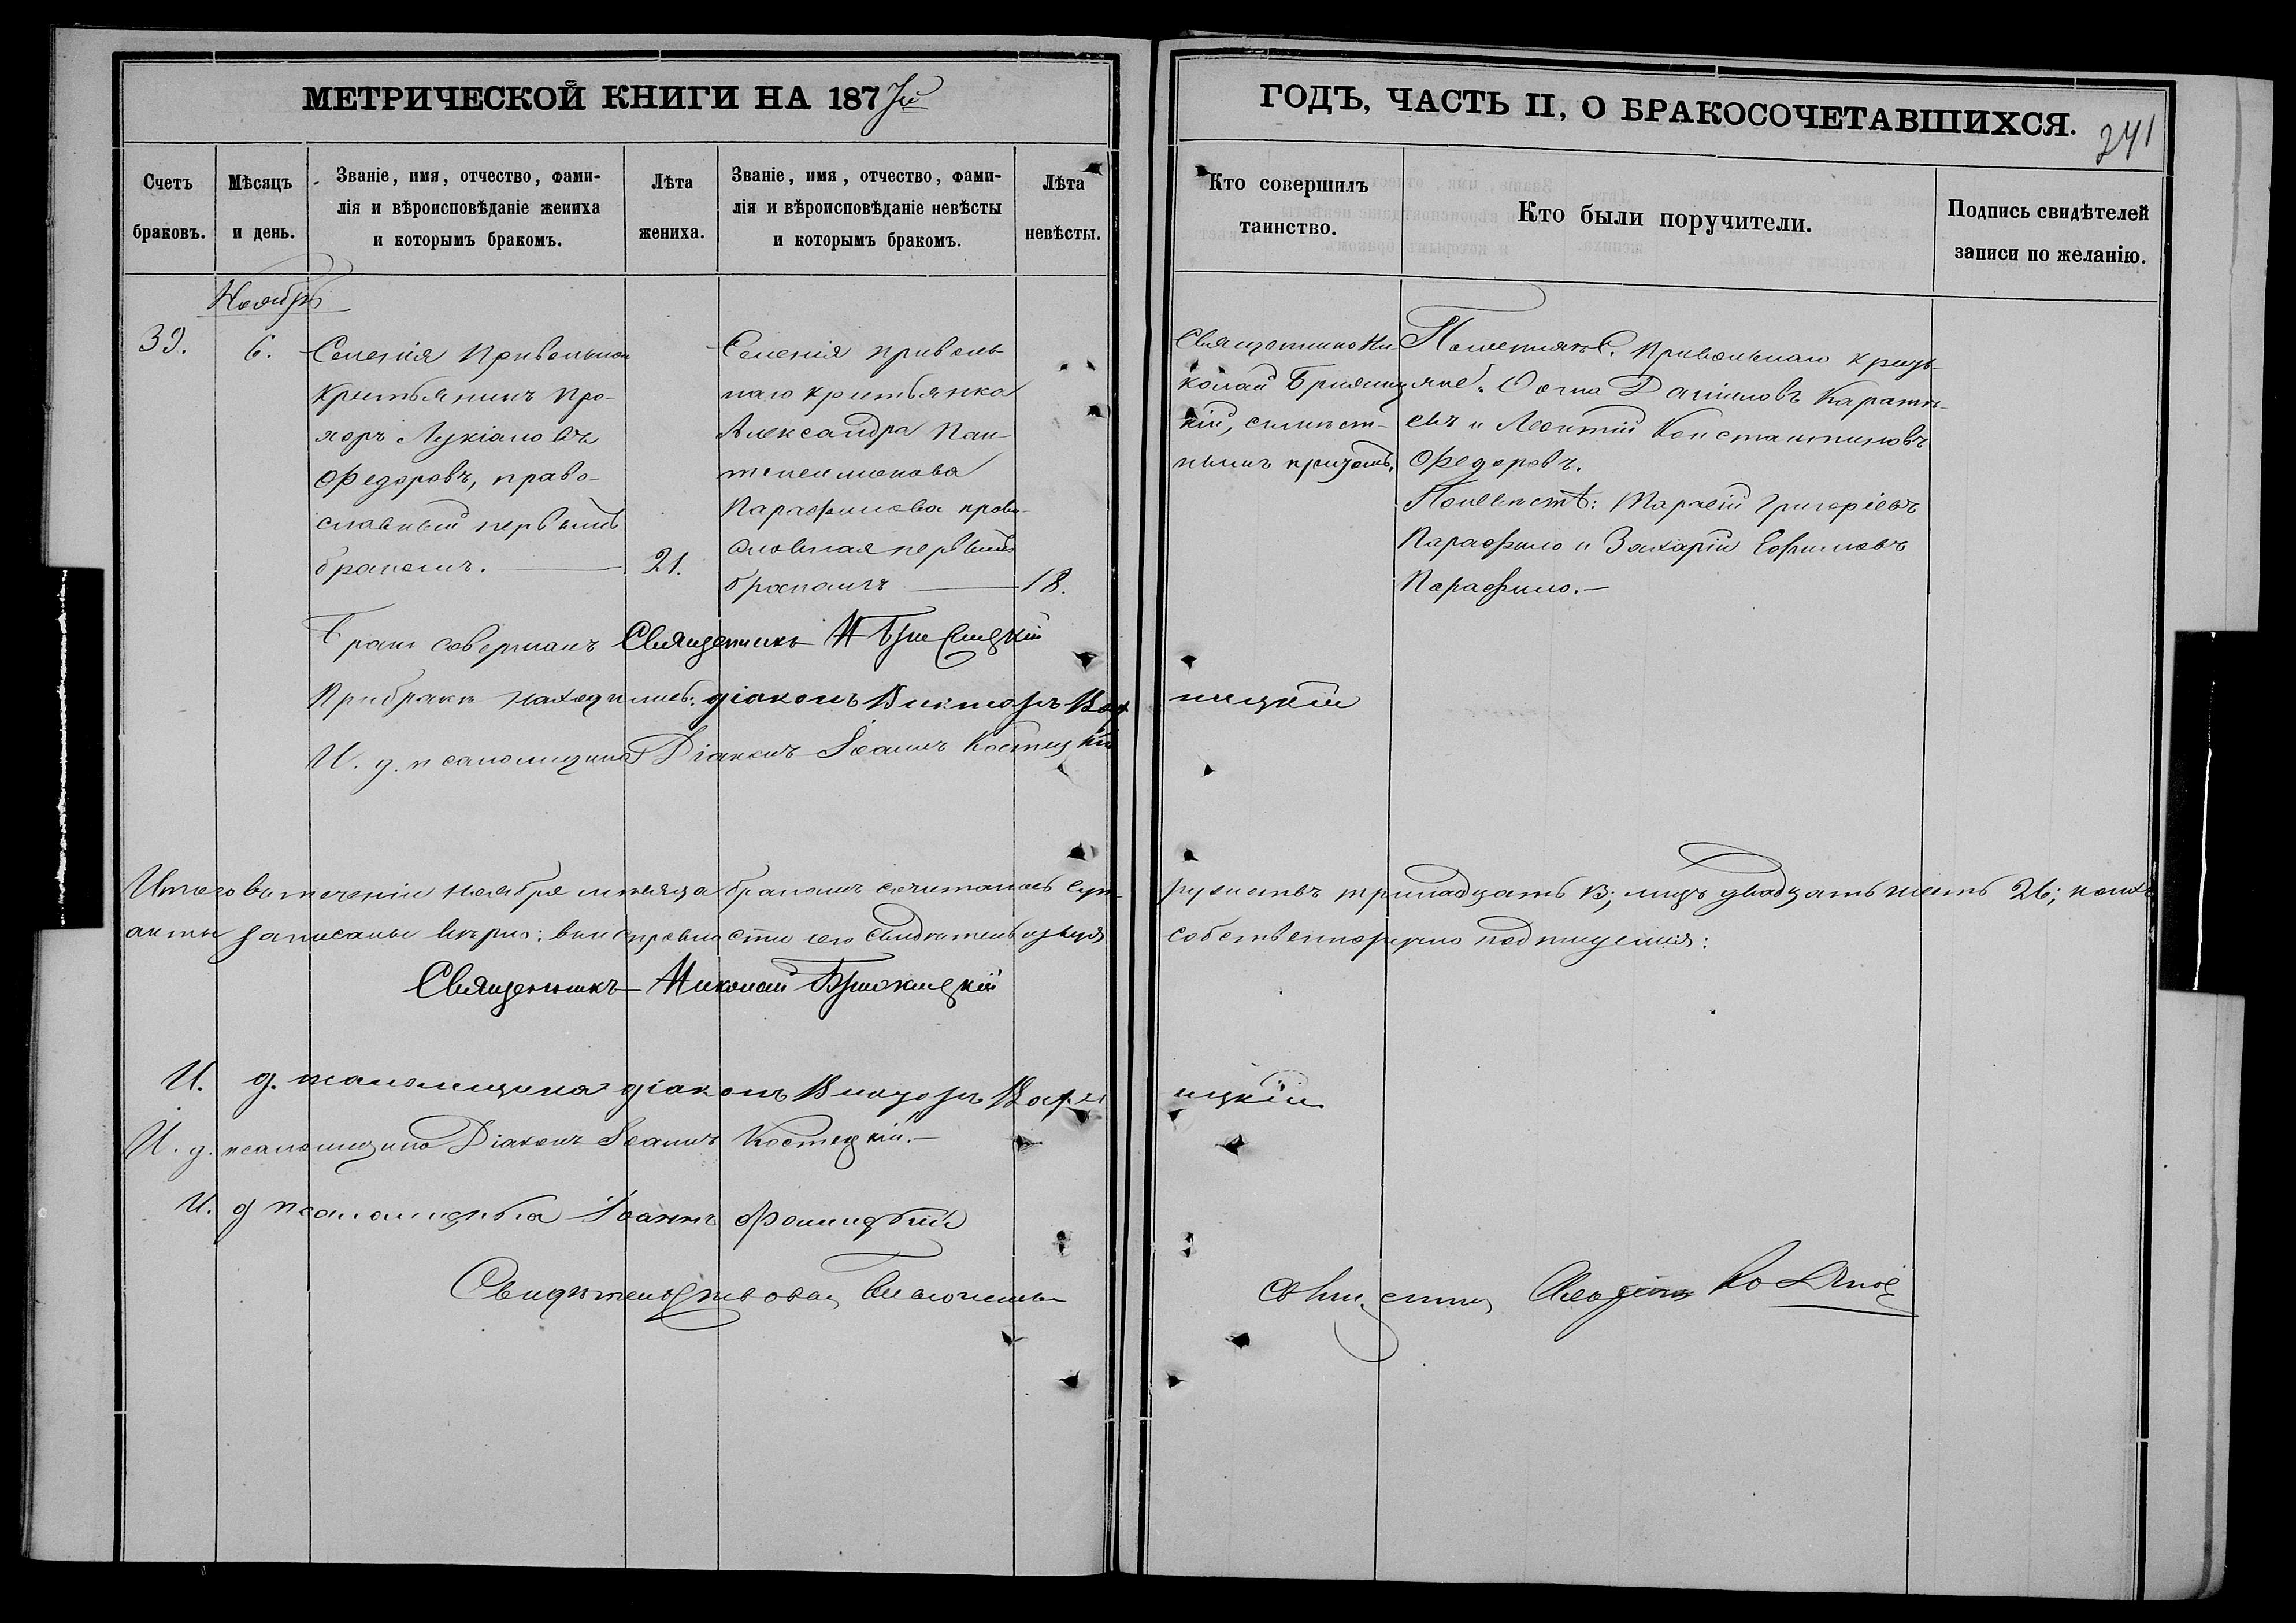 МЕТРИЧЕСКОЙ КНИГИ НА 1877й
ГОДЪ, ЧАСТЬ II, О БРАКОСОЧЕТАВШИХСЯ.
241
Счетъ браковъ.
Мѣсяцъ и день.
Званіе, имя, отчество, фами-
лія и вѣроисповѣданіе жениха
и которымъ бракомъ.
Лѣта жениха.
Званіе, имя, отчество, фами-
лія и вѣроисповѣданіе невѣсты
и которымъ бракомъ.
Лѣта невѣсты.
Кто совершилъ таинство.
Кто были поручители.
Подпись свидѣтелей записи по желанію.
Ноябрь
39.
6.
Селенія Привольнаго
Крестьянинъ Про-
хоръ Лукіановъ
Федоровъ, право-
славный первымъ
бракомъ.
21.
Селенія Приволь-
наго крестьянка
Александра Пан-
телеимонова
Парафилова право-
славная первымъ
бракомъ
18.
Священникъ Ни-
колай
кій, съ
причтомъ.
По женихѣ С. Привольнаго кресть-
яне: Данииловъ
и Леонтій Константиновъ
Федоровъ.
По невѣстѣ: Григоріевъ
Парафило и Захарій Ефимовъ
Парафило.—
Бракъ совершилъ Священникъ Н
При бракѣ находились: діаконъ Викторъ
ницкій
И. д. псаломщика Діаконъ Іоаннъ Костецкій
Итого въ теченіи Ноября мѣсяца бракомъ сочиталось суп-
ружествъ тринадцать 13; лицъ двадцать шесть 26; коихъ
акты записаны вѣрно: въ исправности сего свидѣтельствуемъ
собственноручно подписуемся:
Священникъ Николай
И. д. псаломщика діаконъ Викторъ
ницкій
И. д. псаломщика Діаконъ Іоаннъ Костецкій.—
И. д псаломщика Іоаннъ Фомицкій
Свидѣтельствовалъ Благочинный
Священникъ